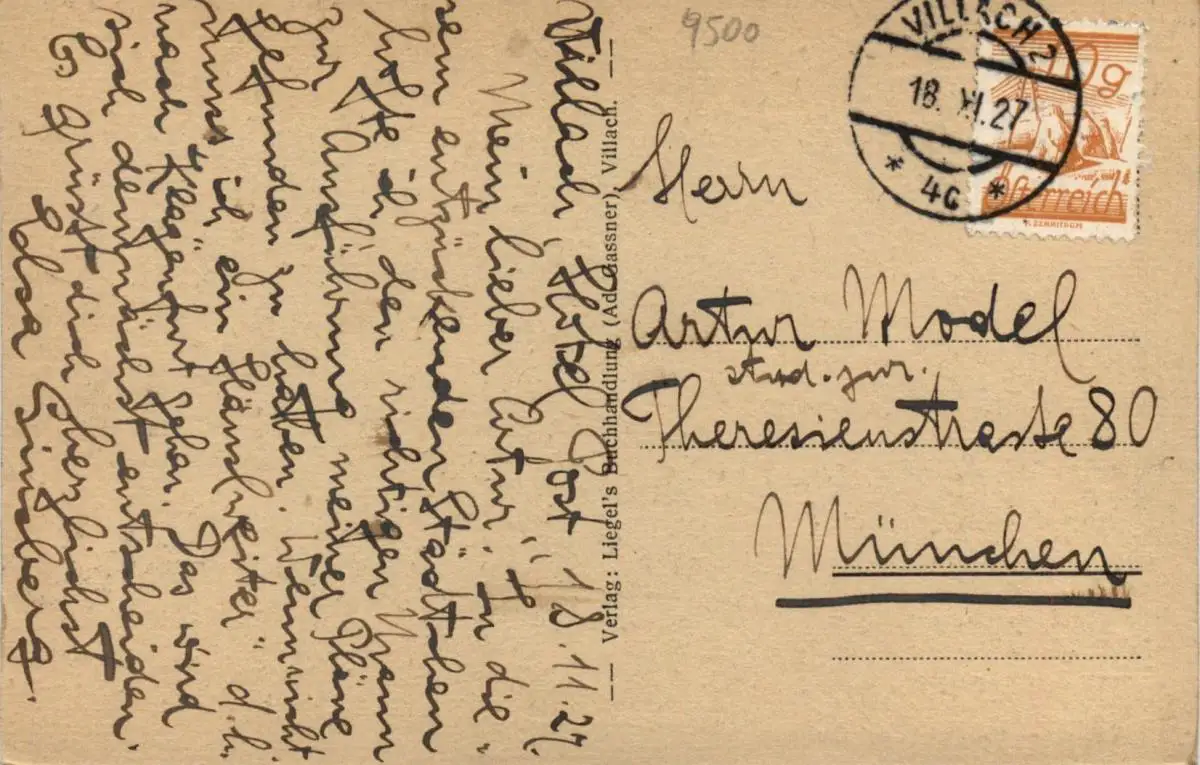 Villach, Hotel Post 18.11.27.
Mein lieber Artur! In die-
sem entzückenden Städtchen
hoffte ich den richtigen Mann
zur Ausführung meiner Pläne
gefunden zu haben. Wenn nicht
muss ich ein Häusl weiter" d.h.
nach Klagenfurt gehen. Das wird
sich demnächst entscheiden.
Es grüsst dich herzlichst
Edsa Ginsberg.
Verlag: Liegel's Buchhandlung (Ad. Gassner), Villach.
9500
VILLACH 2
18. XI. 27
* 4c *
10g
Österreich
Herrn
Artur Model
stud. jur.
Theresienstrasse 80
München